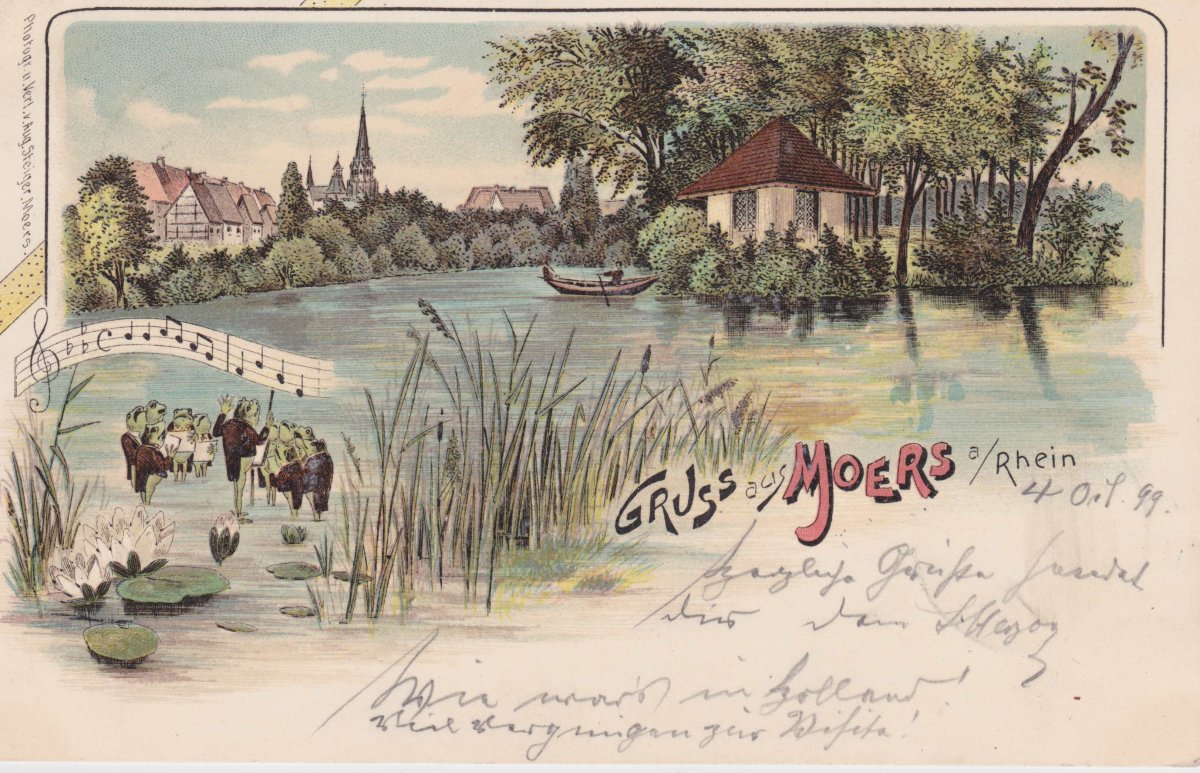 Photogr. u. Verl. v. Aug. Steiger, Moers.
GRUSS aus MOERS a/Rhein
4 Oct. 99.
Herzliche Grüße sendet
Dir Dein
Wie war's in Holland!
Viel Vergnügen zur Visite!